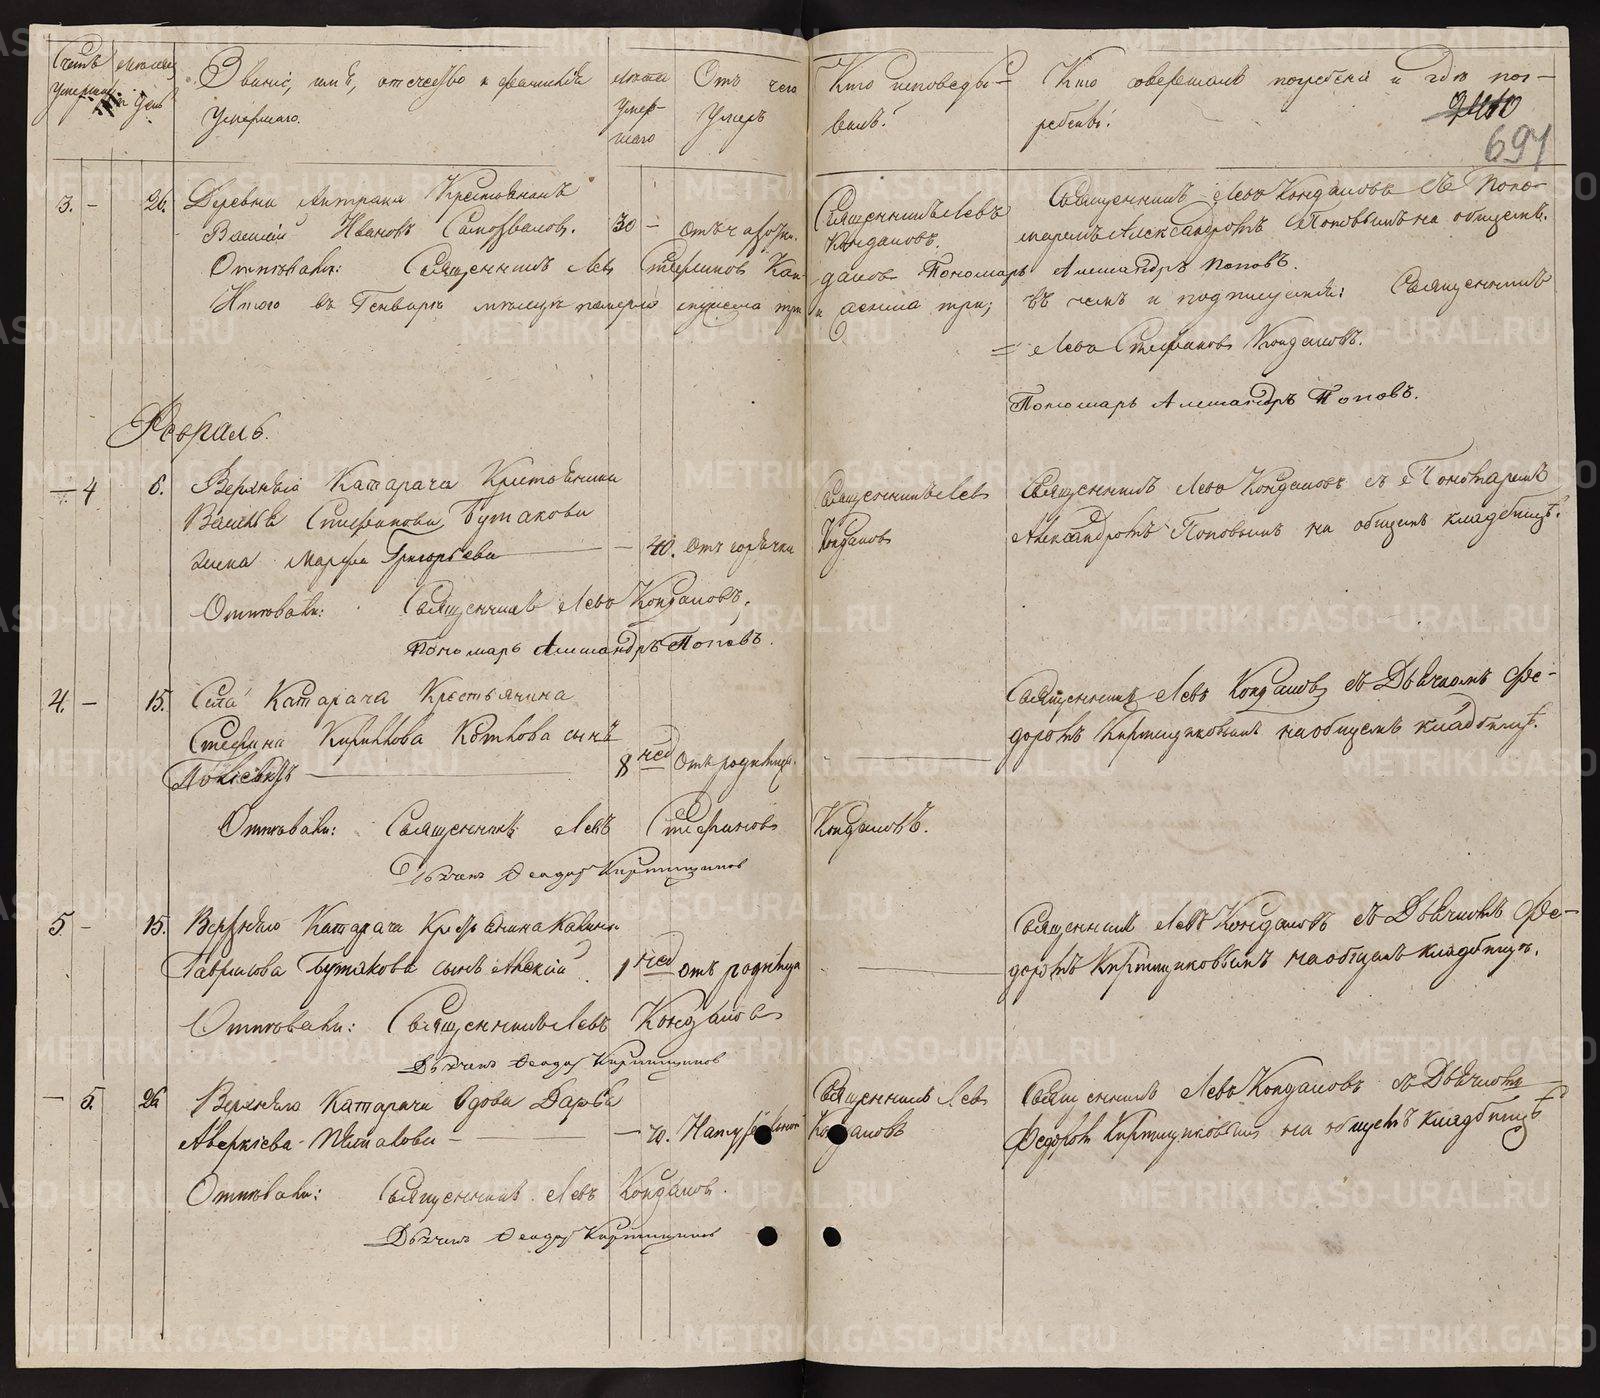 Счетъ умершихъ
Месяцъ и день
Званіе, имя, отчество и фамилія
умершаго.
лета
умер-
шаго
Отъ чего
умеръ
Кто исповеды-
валъ.
Кто совершалъ погребеніе и где пог-
ребены.
697
3. — 26. Деревни Крестьянинъ
Василій Ивановъ Самозваловъ. 30 — отъ чахотки.
Священникъ Левъ
Кондаковъ.
Священникъ Левъ Кондаковъ съ Поно-
маремъ Александромъ Поповымъ на общемъ.
Отпевали: Священникъ Левъ Стефановъ Кондаковъ Пономарь Александръ Поповъ.
Итого въ Генваре месяце померло мужеска три и женска три; въ чемъ и подписуемся: Священникъ
Левъ Стефановъ Кондаковъ.
Пономарь Александръ Поповъ.
Февраль.
— 4 6. Верхняго Катарача Крестьянина
Василья Стефанова Бутакова
жена Марфа Григорьева — 40. отъ горячки
Священникъ Левъ
Кондаковъ
Священникъ Левъ Кондаковъ съ Пономаремъ
Александромъ Поповымъ на общемъ кладбище.
Отпевали: Священникъ Левъ Кондаковъ.
Пономарь Александръ Поповъ.
4. — 15. Села Катарача Крестьянина
Стефана Кирилова сынъ
8 нед отъ родимца.
Священникъ Левъ Кондаковъ съ Дьячкомъ Фе-
доромъ Кирпищиковымъ на общемъ кладбище.
Отпевали: Священникъ Левъ Стефановъ Кондаковъ.
Дьячекъ Феодоръ Кирпищиковъ
5 — 15. Верхняго Катарача Крестьянина
Гаврилова Бутакова сынъ Алексий 1 нед отъ родимца
Священникъ Левъ Кондаковъ съ Дьячкомъ Фе-
доромъ Кирпищиковымъ на общемъ кладбище.
Отпевали: Священникъ Левъ Кондаковъ
Дьячекъ Феодоръ Кирпищиковъ
— 5. 26 Верхняго Катарача вдова Дарья
Аверкіева — 70. Натуральной
Священникъ Левъ
Кондаковъ
Священникъ Левъ Кондаковъ съ Дьячкомъ
Федоромъ Кирпищиковымъ на общемъ кладбище
Отпевали: Священникъ Левъ Кондаковъ.
Дьячекъ Феодоръ Кирпищиковъ
METRIKI.GASO-URAL.RU